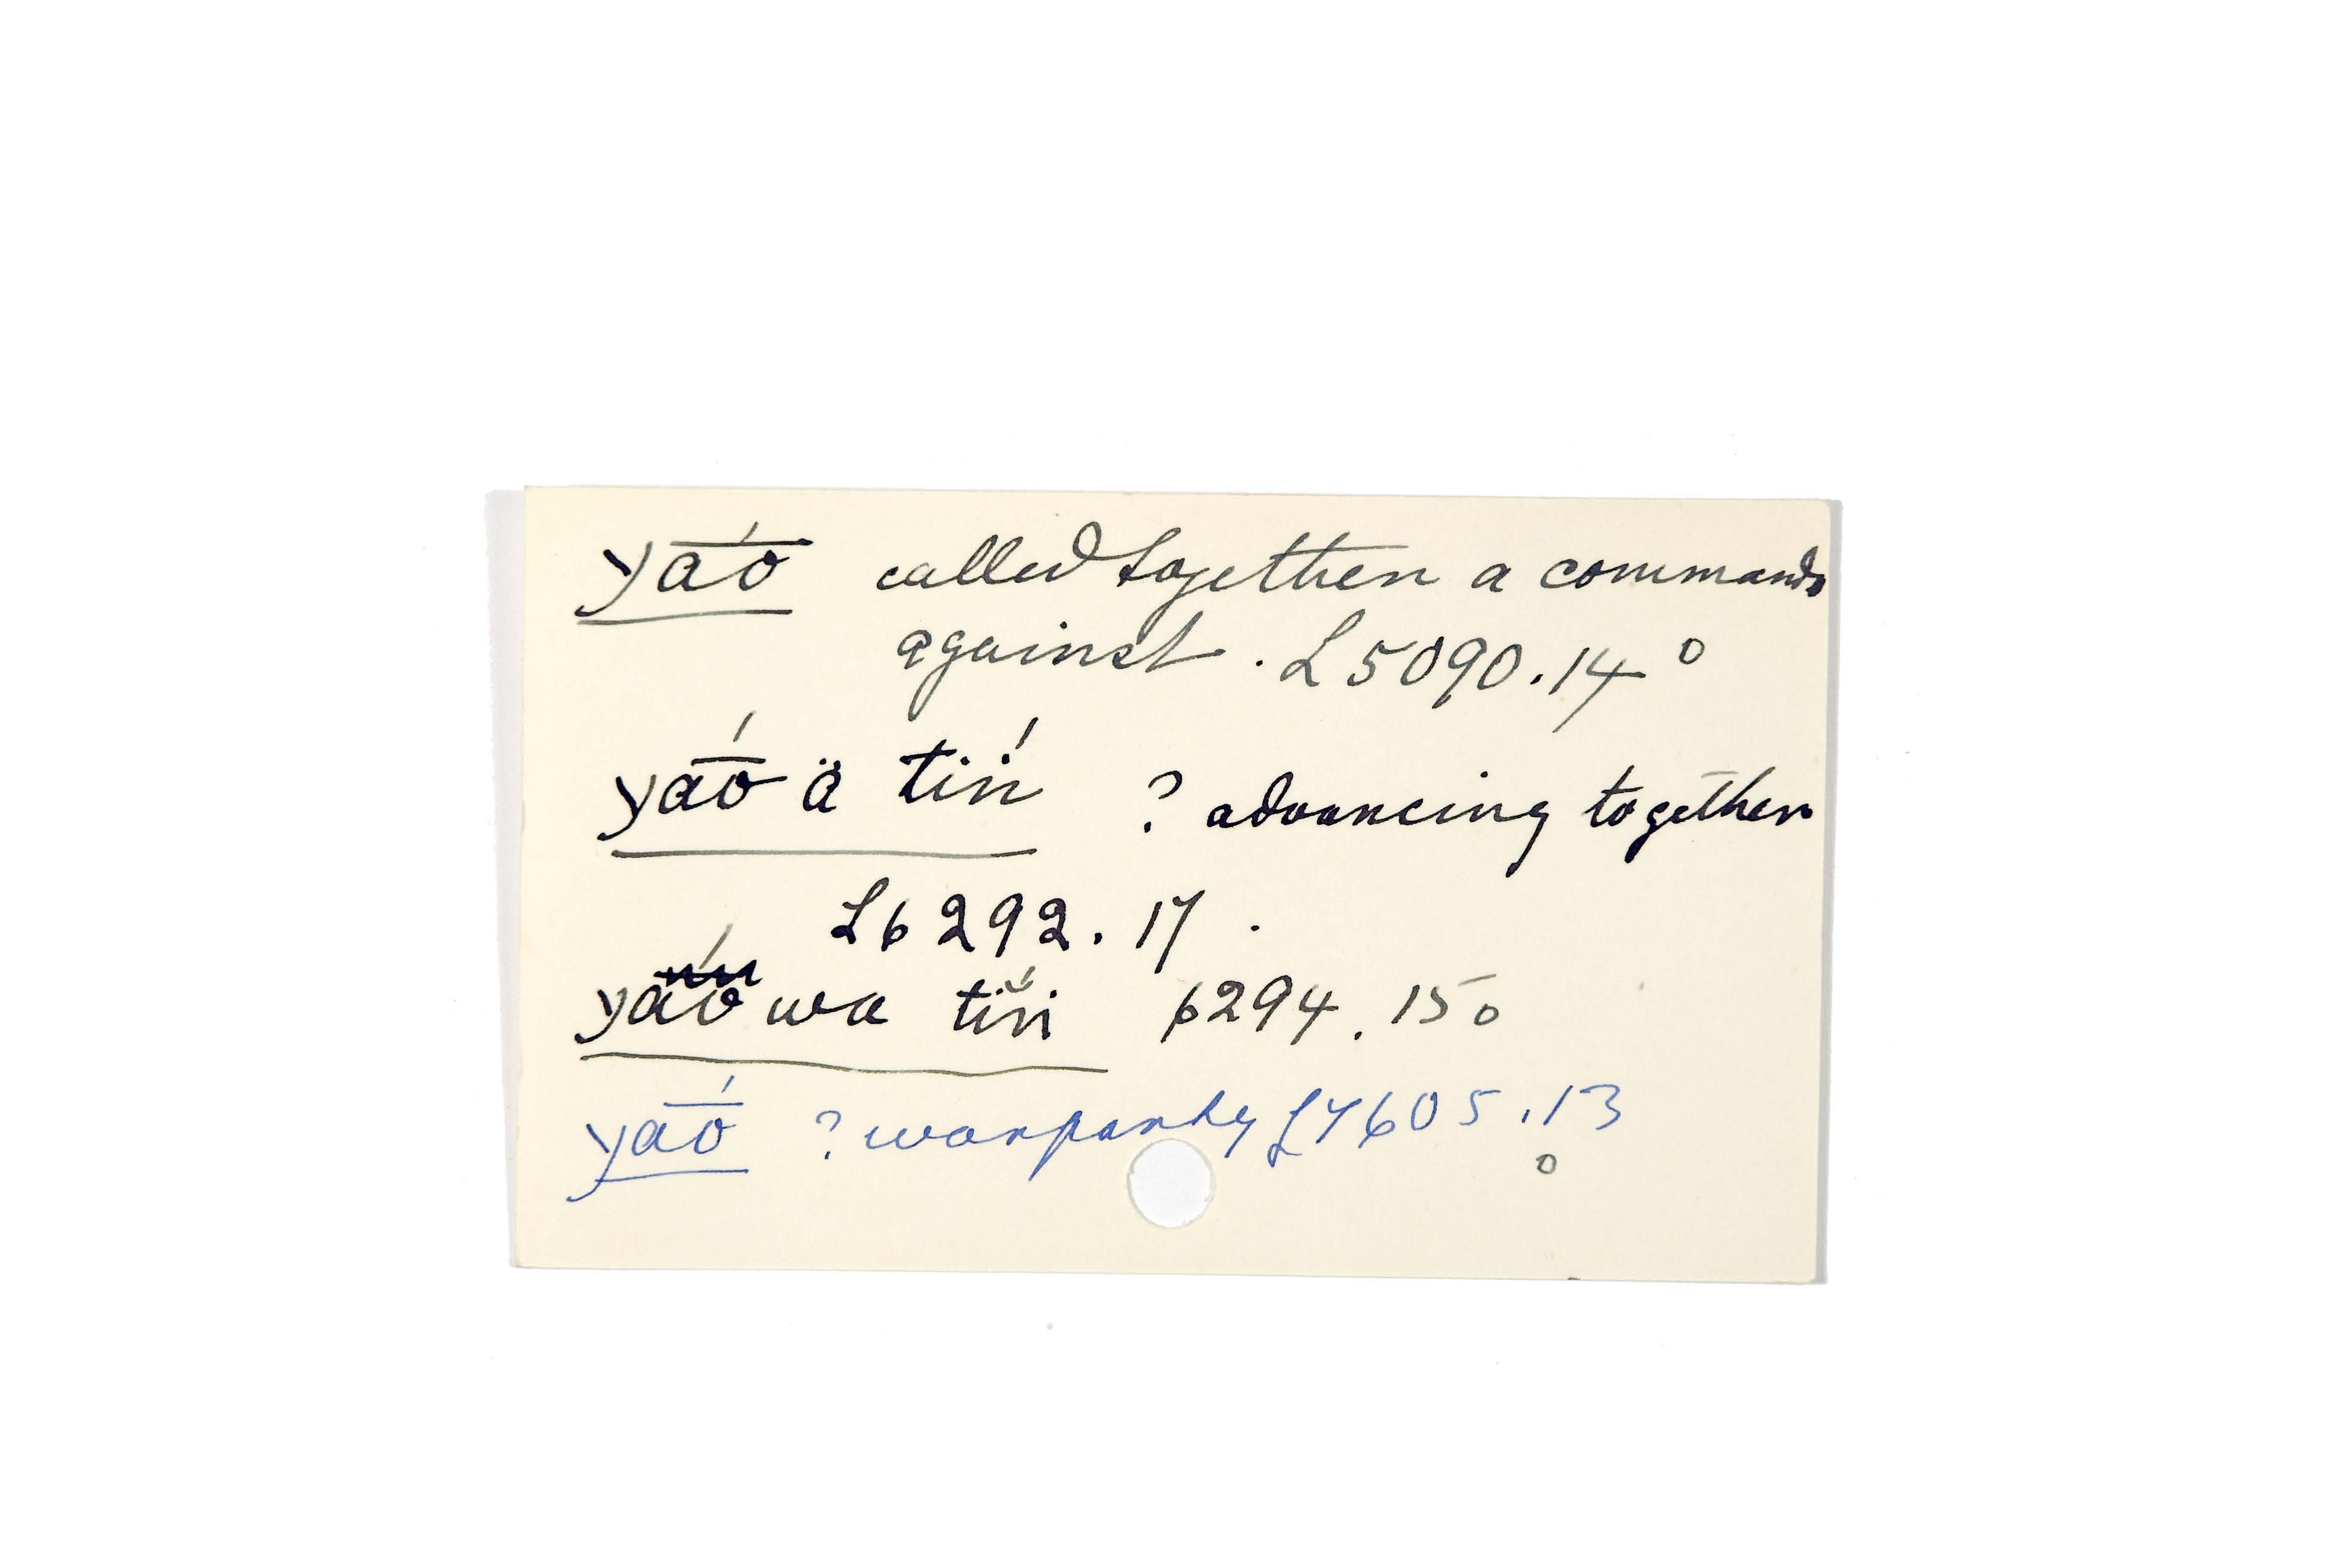 yāṓ called together a commando
against. L5090.14 o
yaṓ ä tiń ? advancing together
L6292.17.
yaó wa tiń 6294.15 o
yaṓ ? warparty L7605.13
o